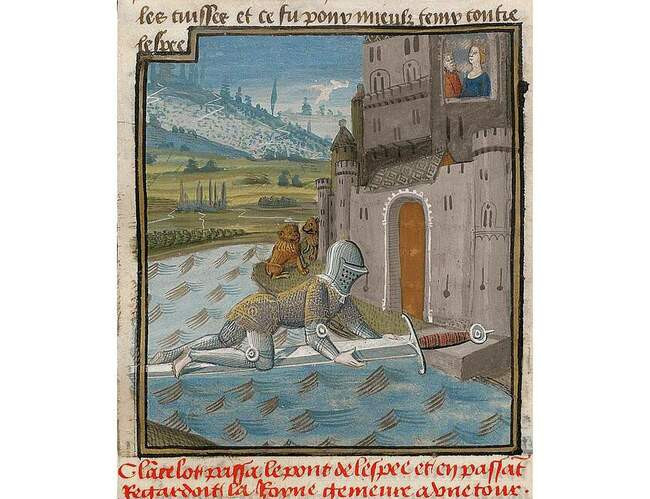 les cuisses et ce fu pour mieulz tenir contre
lespee
Cōmēt lācelot passa le pont de lespee et en passāt
Regardoit la Royne genieure a vne tour.